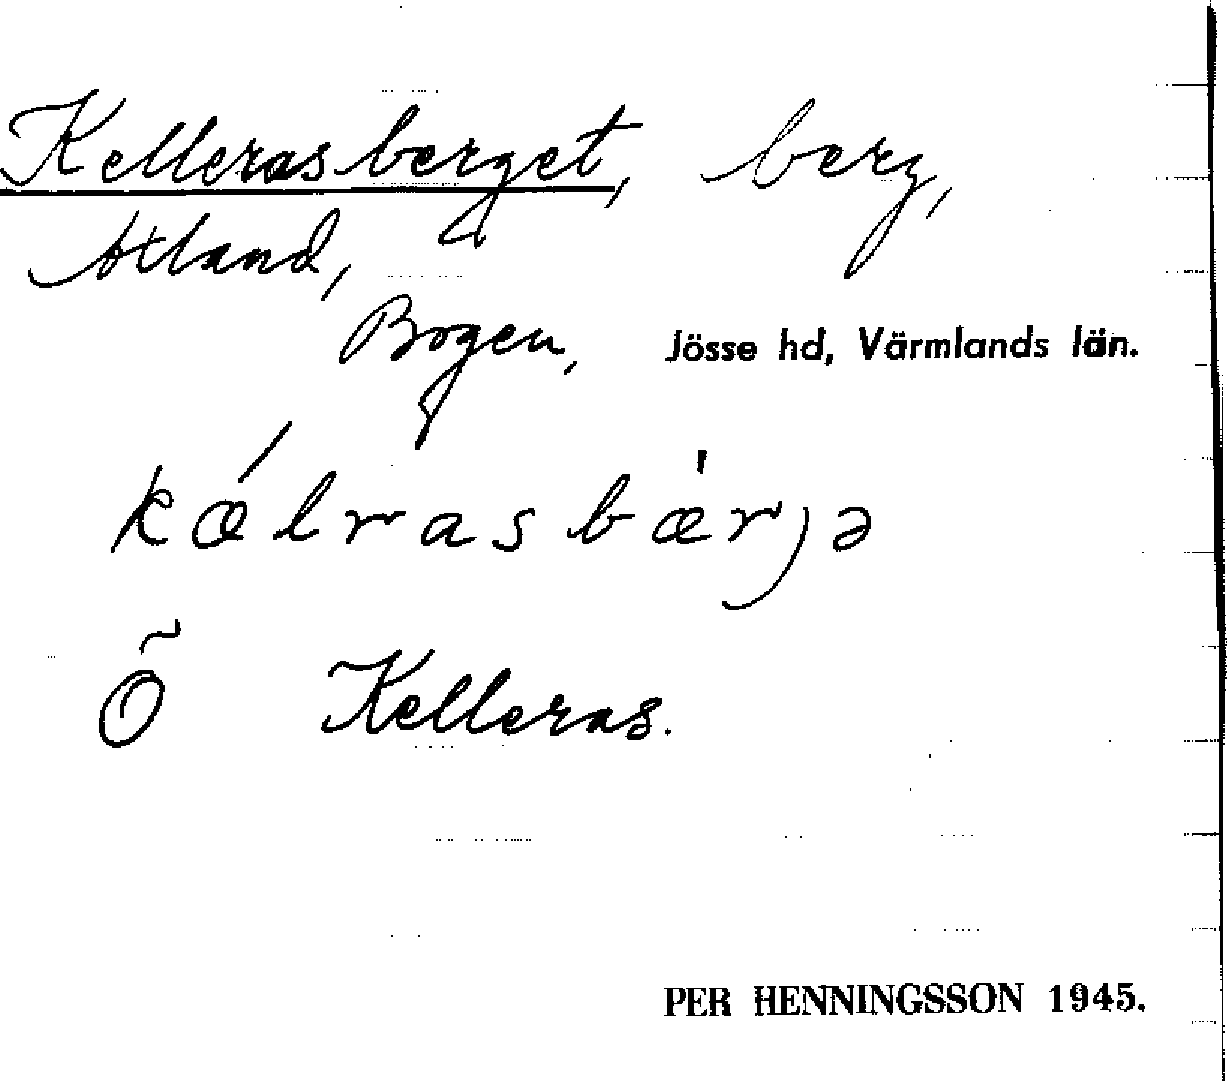 Kellerasberget, berg,
Utland,
Bogen, Jösse hd, Värmlands län.
kǽlrasbæ̀rjə
Õ Kelleras.
PER HENNINGSSON 1945.